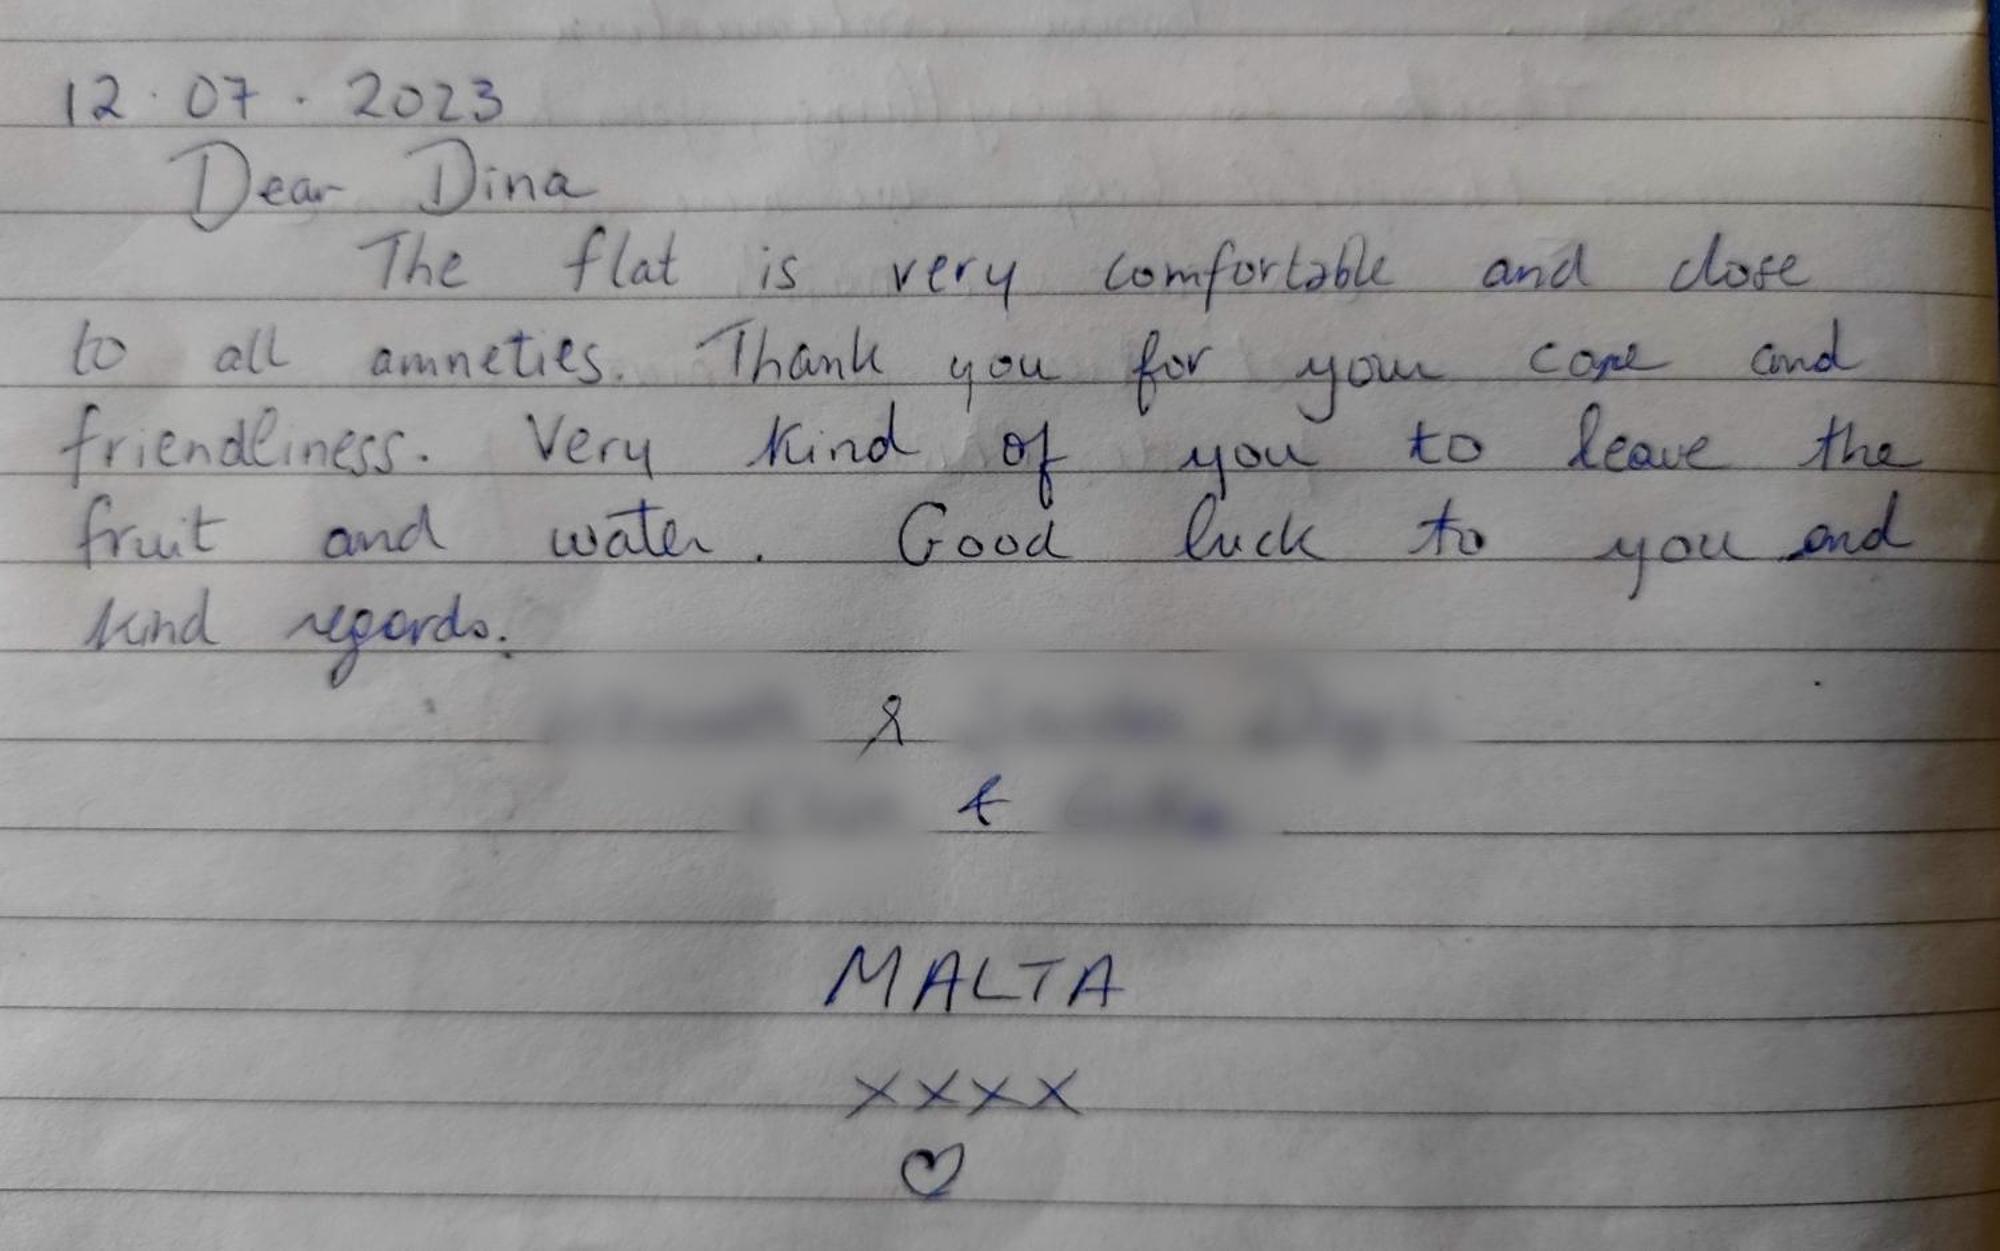 12.07.2023
Dear Dina
The flat is very comfortable and close
to all amneties. Thank you for your care and
friendliness. Very kind of you to leave the
fruit and water. Good luck to you and
kind regards.
&
&
MALTA
xxxx
♡